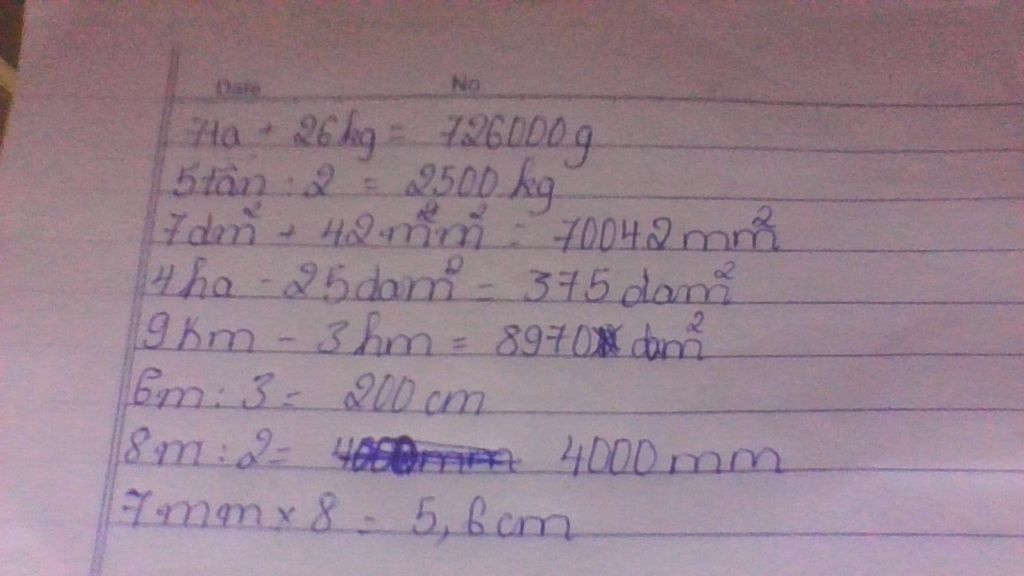 Date No
7tạ + 26kg = 726000g
5tấn : 2 = 2500 kg
7dm² + 42mm² = 70042mm²
4ha - 25dam² = 375dam²
9hm - 3hm = 8970 dam²
6m : 3 = 200cm
8m : 2 = 4000mm 4000mm
7mm x 8 = 5,6cm